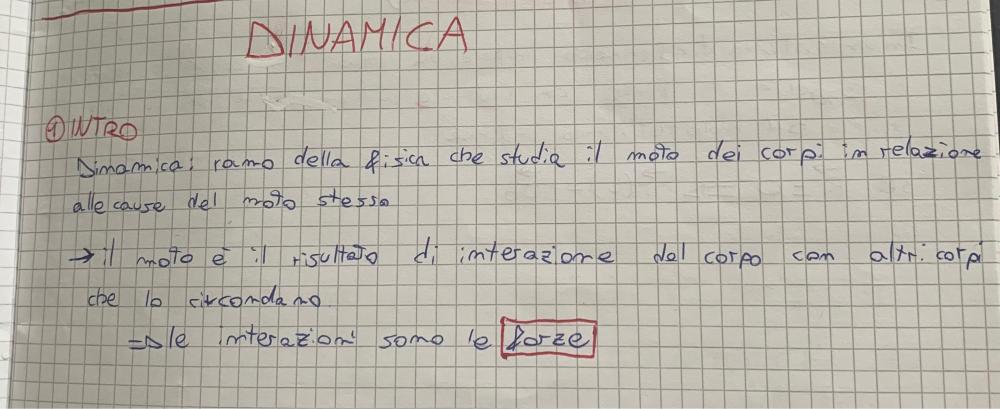 DINAMICA
① INTRO
Dinamica: ramo della fisica che studia il moto dei corpi in relazione
alle cause del moto stesso
→ il moto è il risultato di interazione del corpo con altri corpi
che lo circondano
⇒ le interazioni sono le forze